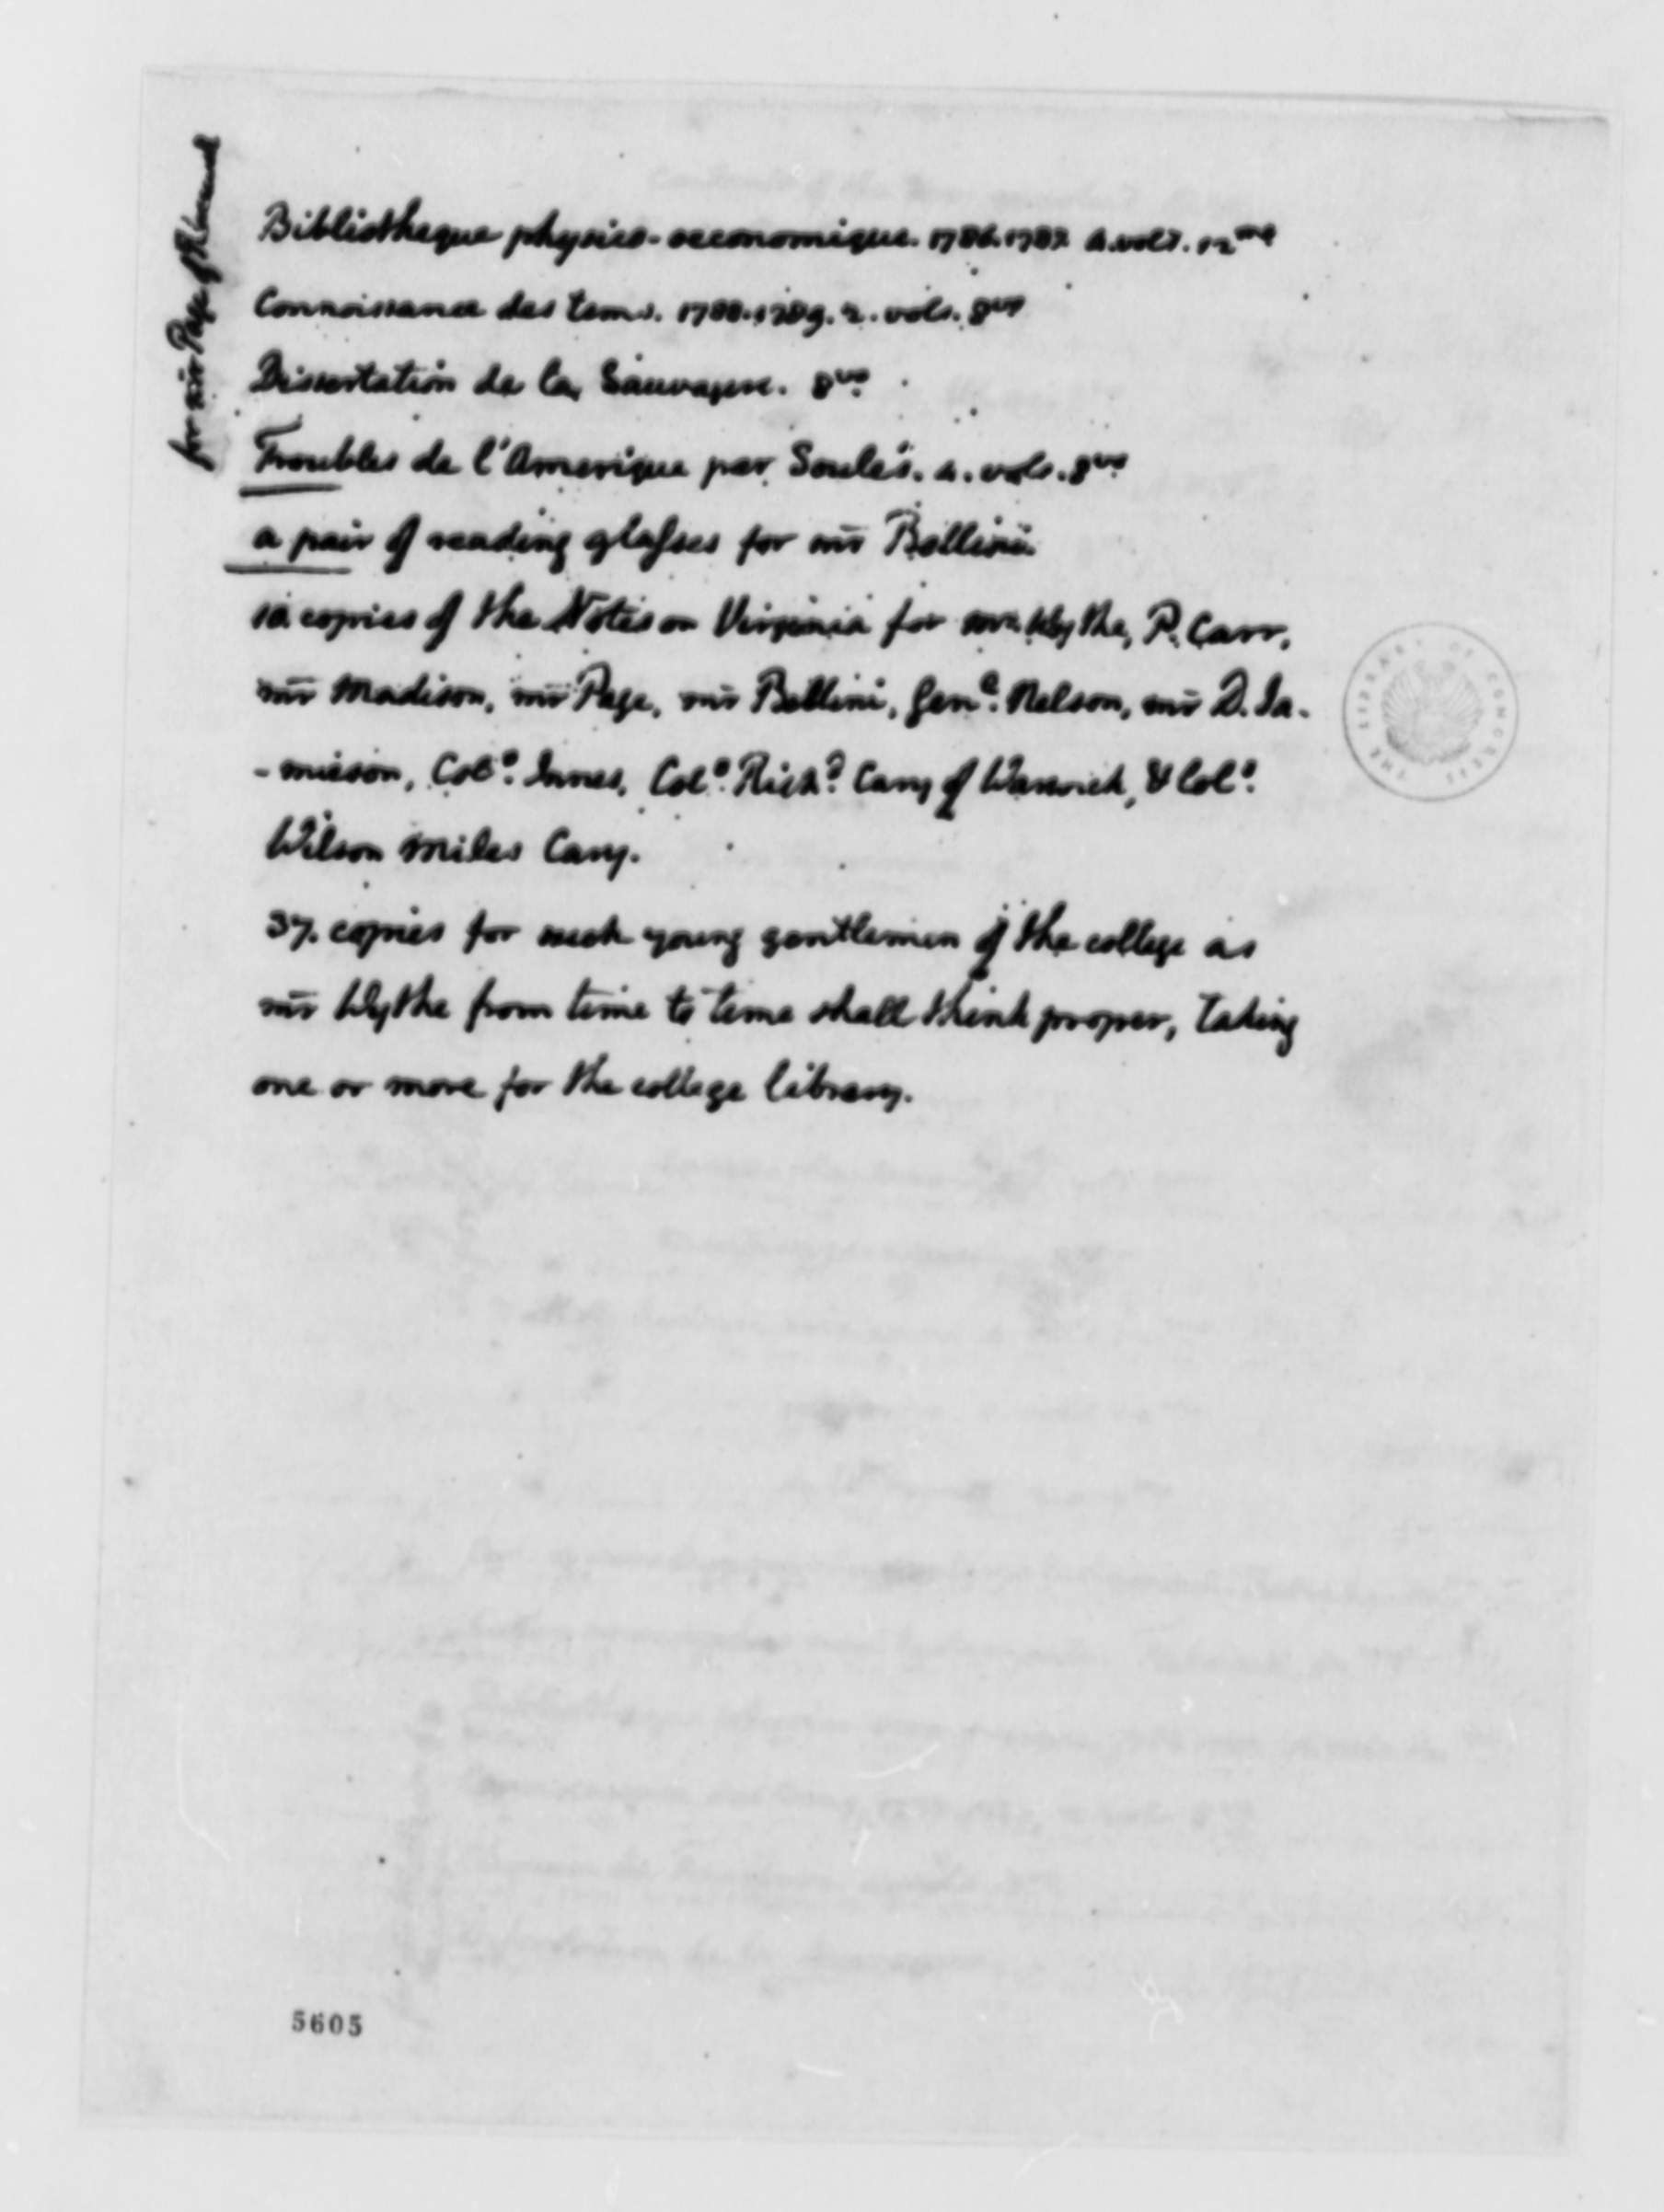 for mr Page of
Bibliotheque physico-oeconomique. 1786.1787. 4.vols. 12mo
Connoissance des tems. 1788.1789. 2. vols. 8vo
Dissertation de la Sauvagere. 8vo.
Troubles de l'Amerique par Soulés. 4. vols. 8vo
a pair of reading glasses for mr Bellini.
10. copies of the Notes on Virginia for mr Wythe, P. Carr,
mr Madison, mr Page, mr Bellini, Genl. Nelson, mr D. Ja-
-mieson, Colo. Innes, Colo. Richd. Cary of Warwick, & Colo.
Wilson Miles Cary.
37. copies for such young gentlemen of the college as
mr Wythe from time to time shall think proper, taking
one or more for the college library.
THE LIBRARY OF CONGRESS
5605